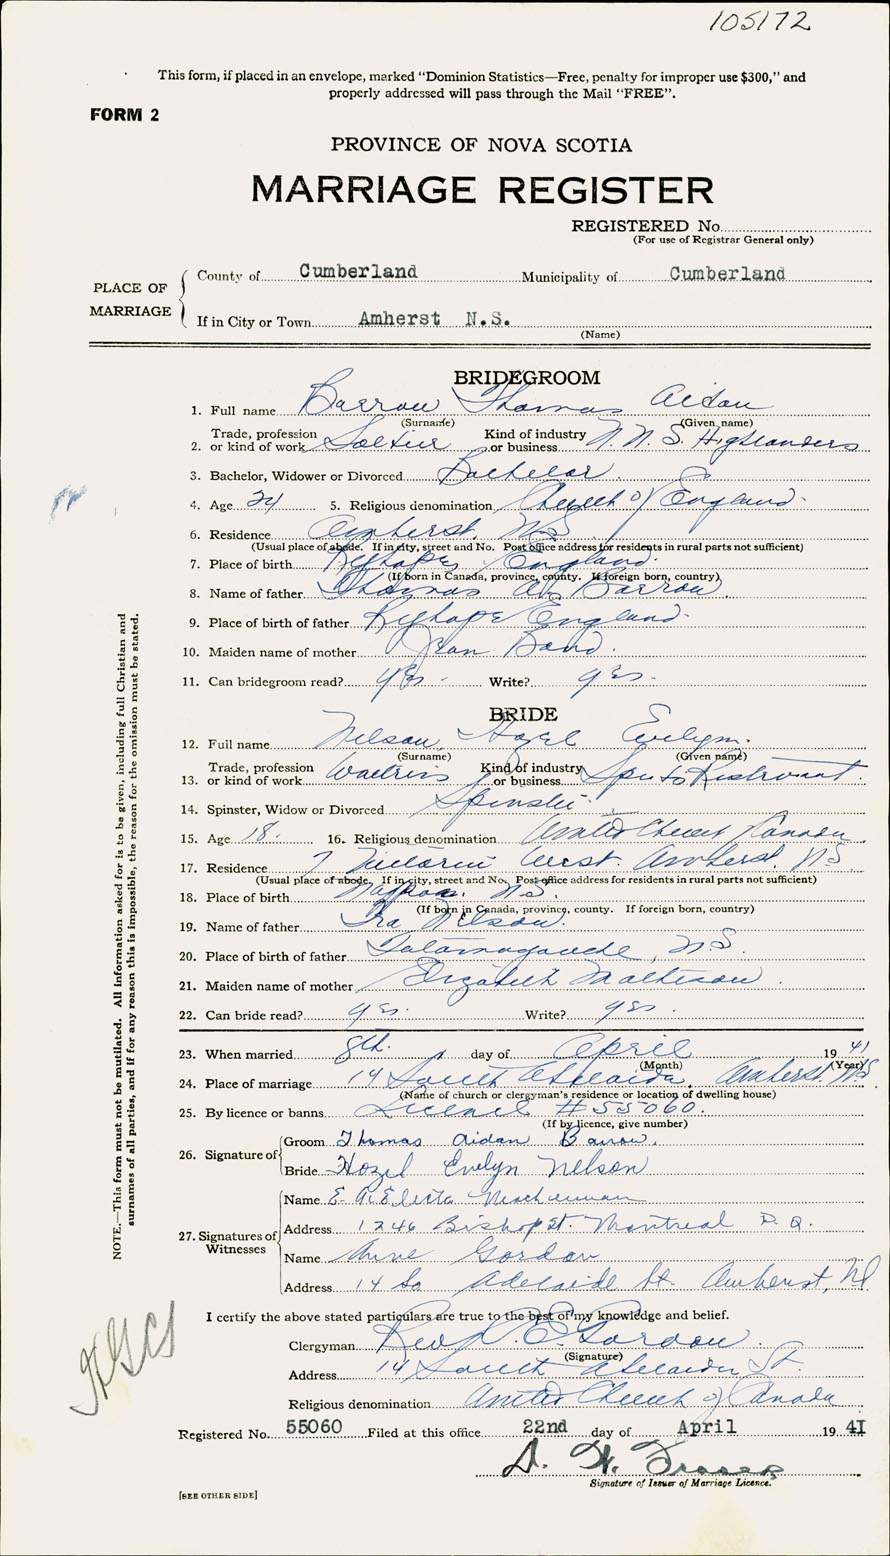 105172
This form, if placed in an envelope, marked "Dominion Statistics—Free, penalty for improper use $300," and
properly addressed will pass through the Mail "FREE".
FORM 2
PROVINCE OF NOVA SCOTIA
MARRIAGE REGISTER
REGISTERED No.
(For use of Registrar General only)
PLACE OF MARRIAGE
County of Cumberland Municipality of Cumberland
If in City or Town Amherst N.S.
(Name)
BRIDEGROOM
1. Full name Barrow Thomas Aidan
(Surname) (Given name)
2. Trade, profession or kind of work Soldier Kind of industry or business N. N. S. Highlanders
3. Bachelor, Widower or Divorced Bachelor
4. Age 24 5. Religious denomination Church of England
6. Residence Amherst, N.S
(Usual place of abode. If in city, street and No. Post office address for residents in rural parts not sufficient)
7. Place of birth Ryhope England
(If born in Canada, province, county. If foreign born, country)
8. Name of father Thomas Barrow
9. Place of birth of father Ryhope England
10. Maiden name of mother Jean Band
11. Can bridegroom read? yes Write? yes
BRIDE
12. Full name Nelson, Hazel Evelyn
(Surname) (Given name)
13. Trade, profession or kind of work Waitress Kind of industry or business
14. Spinster, Widow or Divorced Spinster
15. Age 18 16. Religious denomination United Church Canada
17. Residence 7 Victoria West. Amherst. N.S
(Usual place of abode. If in city, street and No. Post office address for residents in rural parts not sufficient)
18. Place of birth N.S.
(If born in Canada, province, county. If foreign born, country)
19. Name of father Ira Nelson
20. Place of birth of father Tatamagouche, N.S.
21. Maiden name of mother Elizabeth Matheson
22. Can bride read? yes Write? yes
23. When married 8th day of April 1941
(Month) (Year)
24. Place of marriage 14 South Adelaide, Amherst N.S
(Name of church or clergyman's residence or location of dwelling house)
25. By licence or banns License #55060.
(If by licence, give number)
26. Signature of
Groom Thomas Aidan Barrow.
Bride Hazel Evelyn Nelson
27. Signatures of Witnesses
Name E.
Address 1246 Bishop St. Montreal P.Q.
Name Anne Gordon
Address 14 So Adelaide St. Amherst, NS
I certify the above stated particulars are true to the best of my knowledge and belief.
Clergyman Rev E Gordon
(Signature)
Address 14 South Adelaide St.
Religious denomination United Church of Canada
Registered No. 55060 Filed at this office 22nd day of April 1941
D. W. Fraser
Signature of Issuer of Marriage Licence.
[SEE OTHER SIDE]
NOTE.—This form must not be mutilated. All information asked for is to be given, including full Christian and
surnames of all parties, and if for any reason this is impossible, the reason for the omission must be stated.